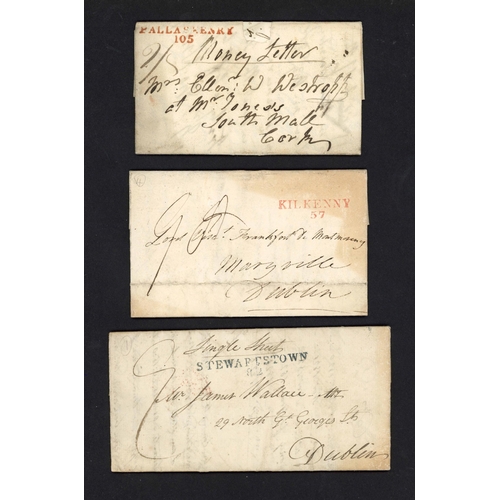 PALLASKENRY
105
2/5 Money Letter
Mrs Ellenr W Westropp
at Mr Jones's
South Mall
Cork
KILKENNY
57
Lord Visct. Frankfort de Montmorency
Maryville
Dublin
Single Sheet
STEWARTSTOWN
82
Mr James Wallace Att
29 North Gt Georges St
Dublin